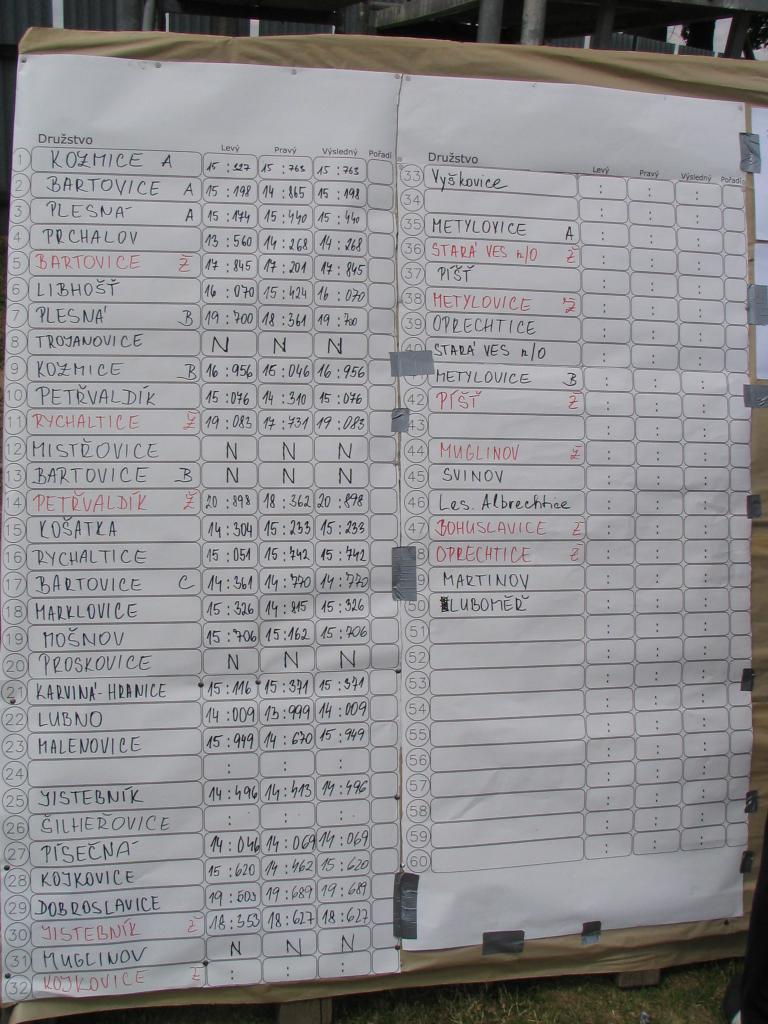 Družstvo Levý Pravý Výsledný Pořadí
1 KOZMICE A 15:327 15:763 15:763
2 BARTOVICE A 15:198 14:865 15:198
3 PLESNÁ A 15:174 15:440 15:440
4 PRCHALOV 13:560 14:268 14:268
5 BARTOVICE Ž 17:845 17:201 17:845
6 LIBHOŠŤ 16:070 15:424 16:070
7 PLESNÁ B 19:700 18:361 19:700
8 TROJANOVICE N N N
9 KOZMICE B 16:956 15:046 16:956
10 PETŘVALDÍK 15:076 14:310 15:076
11 RYCHALTICE Ž 19:083 17:731 19:083
12 MISTŘOVICE N N N
13 BARTOVICE B N N N
14 PETŘVALDÍK Ž 20:898 18:362 20:898
15 KOŠATKA 14:304 15:233 15:233
16 RYCHALTICE 15:051 15:742 15:742
17 BARTOVICE C 14:361 14:770 14:770
18 MARKLOVICE 15:326 14:815 15:326
19 MOŠNOV 15:706 15:162 15:706
20 PROSKOVICE N N N
21 KARVINÁ-HRANICE 15:116 15:371 15:371
22 LUBNO 14:009 13:999 14:009
23 MALENOVICE 15:949 14:670 15:949
24 : : :
25 JISTEBNÍK 14:496 14:413 14:496
26 ŠILHEŘOVICE : : :
27 PÍSEČNÁ 14:046 14:069 14:069
28 KOJKOVICE 15:620 14:462 15:620
29 DOBROSLAVICE 19:503 19:689 19:689
30 JISTEBNÍK Ž 18:353 18:627 18:627
31 MUGLINOV N N N
32 KOJKOVICE Ž : : :
Družstvo Levý Pravý Výsledný Pořadí
33 Vyškovice : : :
34 : : :
35 METYLOVICE A : : :
36 STARÁ VES n/O Ž : : :
37 PÍŠŤ : : :
38 METYLOVICE Ž : : :
39 OPRECHTICE : : :
40 STARÁ VES n/O : : :
METYLOVICE B : : :
42 PÍŠŤ Ž : : :
43 : : :
44 MUGLINOV Ž : : :
45 SVINOV : : :
46 Les. Albrechtice : : :
47 BOHUSLAVICE Ž : : :
8 OPRECHTICE Ž : : :
9 MARTINOV : : :
50 LUBOMĚŘ : : :
51 : : :
52 : : :
53 : : :
54 : : :
55 : : :
56 : : :
57 : : :
58 : : :
59 : : :
60 : : :